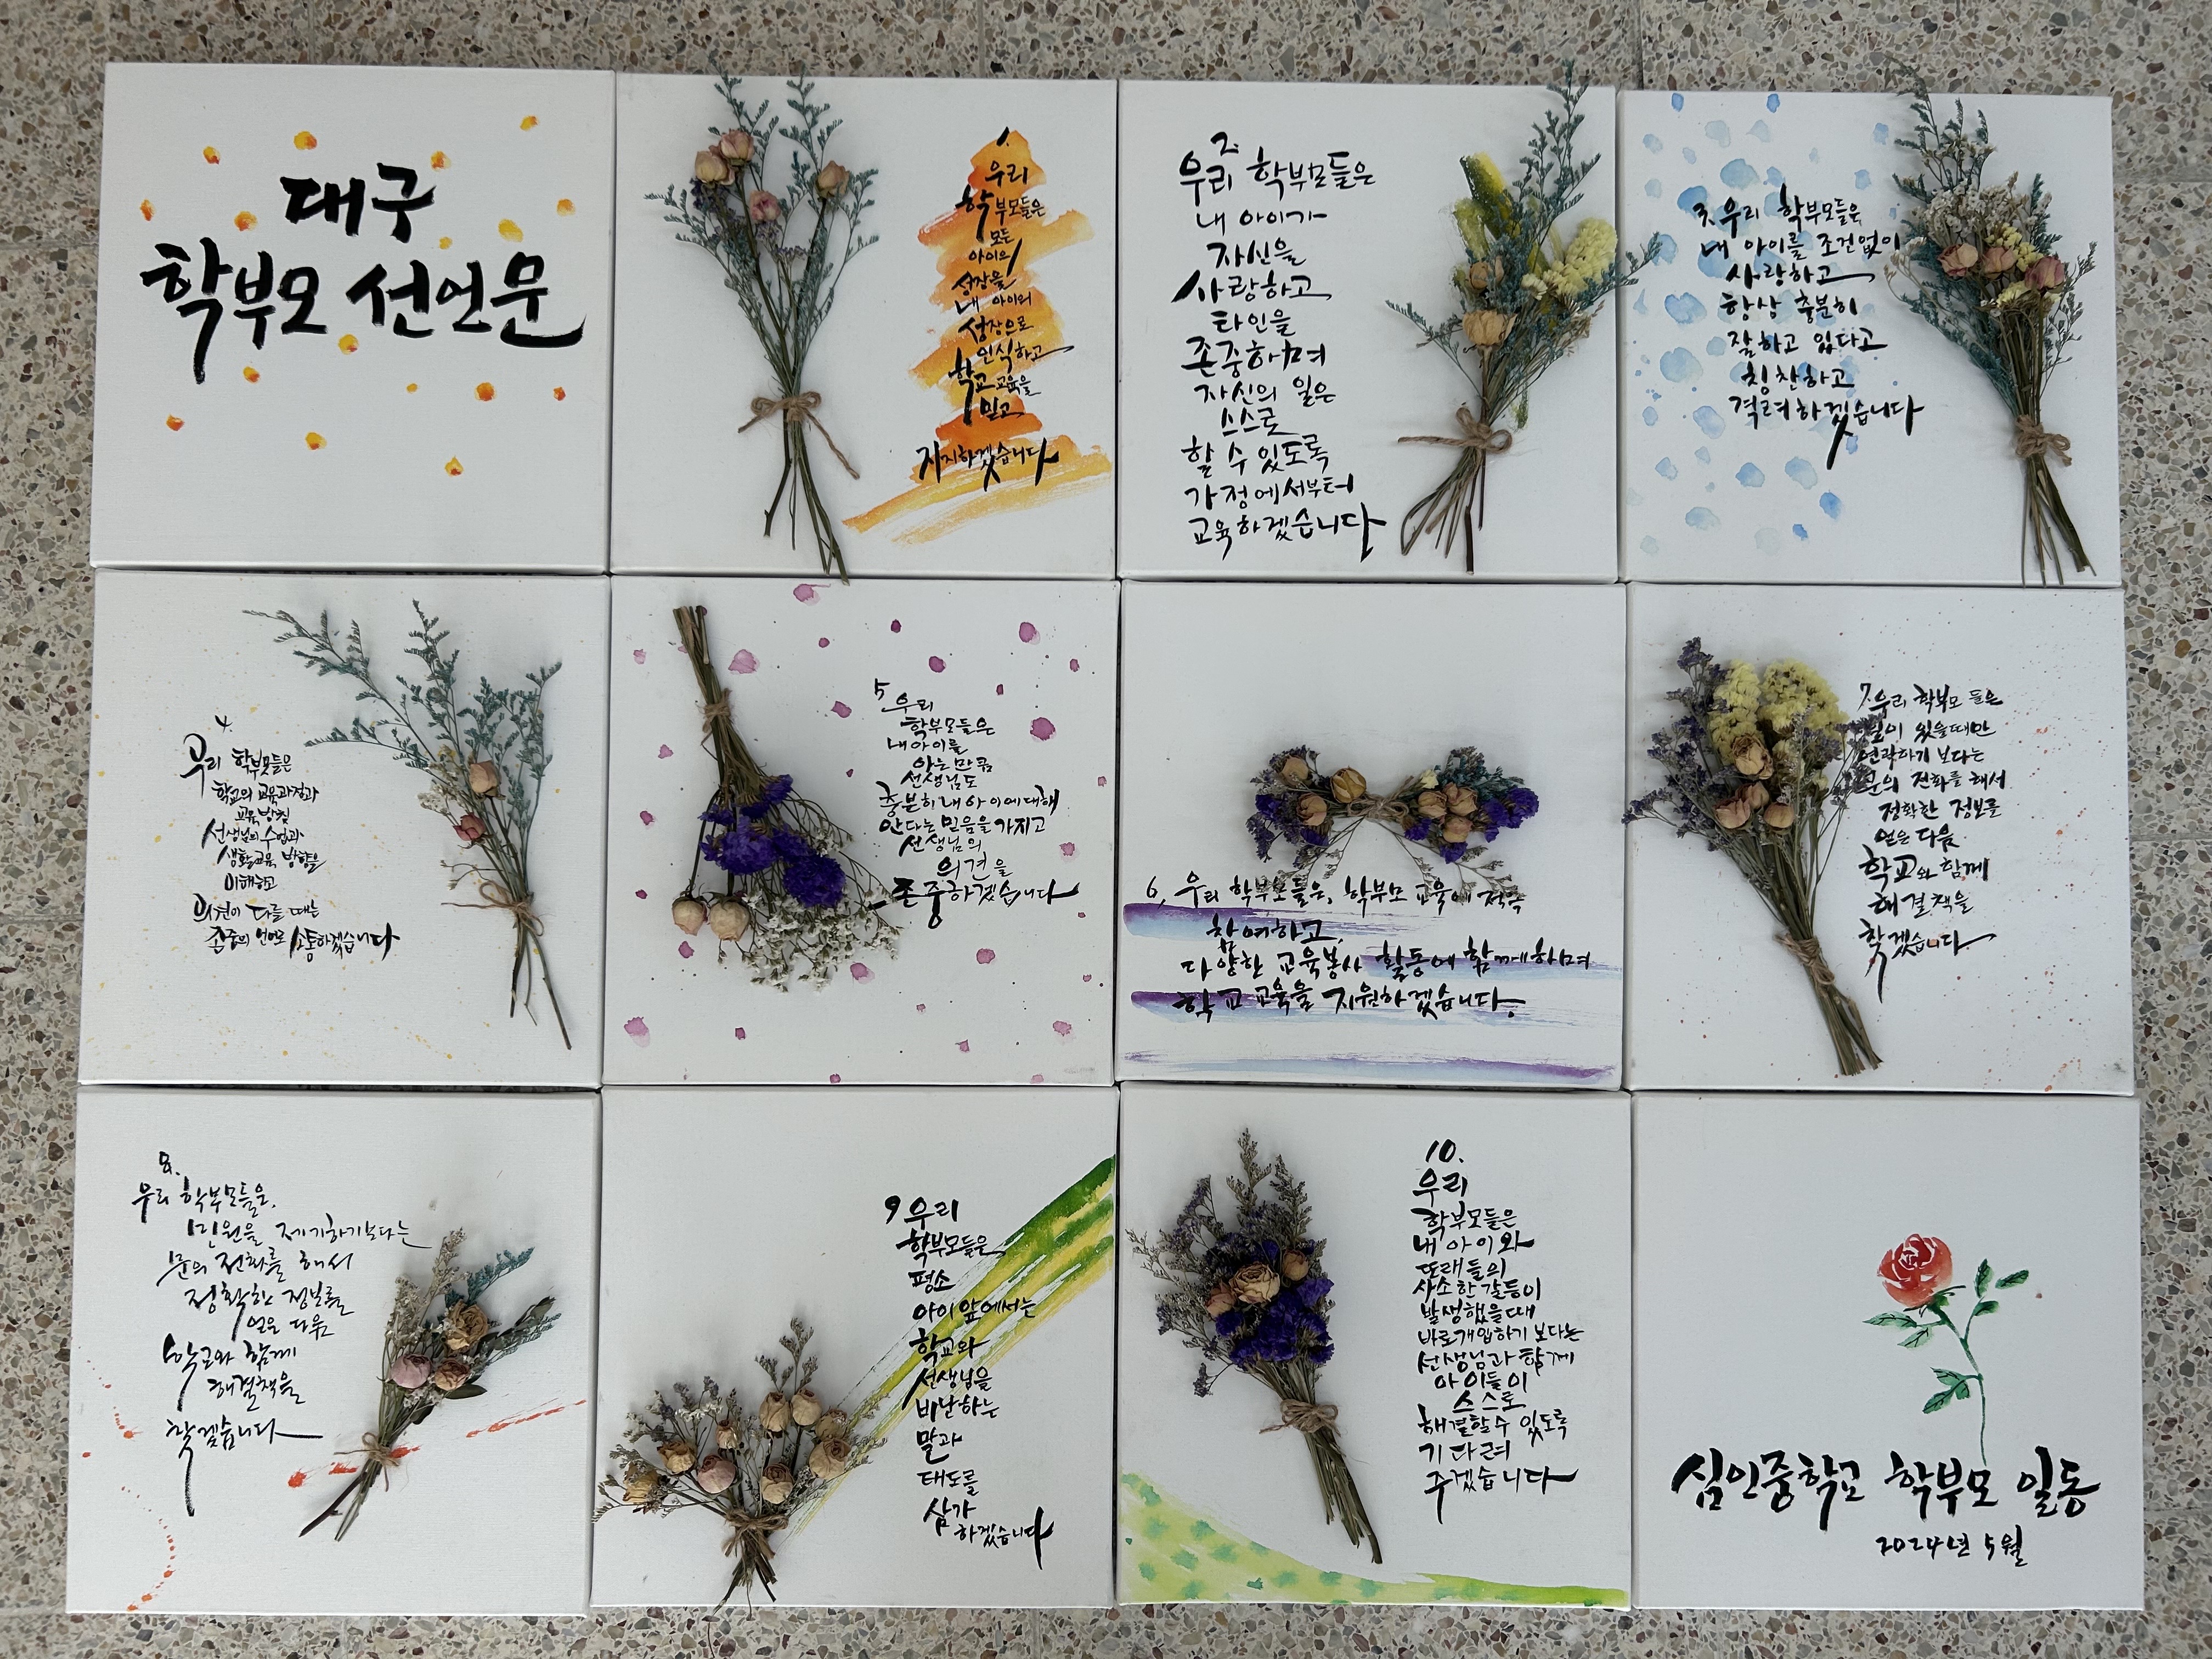 대구
학부모 선언문
1.
우리
학부모들은
모든
아이의
성장을
내 아이의
성장으로
인식하고
학교 교육을
믿고
지지하겠습니다
2.
우리 학부모들은
내 아이가
자신을
사랑하고
타인을
존중하며
자신의 일은
스스로
할 수 있도록
가정에서부터
교육하겠습니다
3. 우리 학부모들은
내 아이를 조건없이
사랑하고
항상 충분히
잘하고 있다고
칭찬하고
격려하겠습니다
4.
우리 학부모들은
학교의 교육과정과
교육방침
선생님의 수업과
생활교육 방향을
이해하고
의견이 다를 때는
존중의 언어로 소통하겠습니다
5. 우리
학부모들은
내아이를
아는만큼
선생님도
충분히 내 아이에 대해
안다는 믿음을 가지고
선생님의
의견을
존중하겠습니다
6. 우리 학부모들은, 학부모 교육에 적극
참여하고,
다양한 교육봉사 활동에 함께하며
학교 교육을 지원하겠습니다.
7. 우리 학부모 들은
일이 있을때만
연락하기 보다는
문의 전화를 해서
정확한 정보를
얻은 다음
학교와 함께
해결책을
찾겠습니다
8.
우리 학부모들은,
민원을 제기하기보다는
문의 전화를 해서
정확한 정보를
얻은 다음
학교와 함께
해결책을
찾겠습니다
9 우리
학부모들은
평소
아이 앞에서는
학교와
선생님을
비난하는
말과
태도를
삼가
하겠습니다
10.
우리
학부모들은
내 아이와
또래들의
사소한 갈등이
발생했을때
바로개입하기 보다는
선생님과 함께
아이들이
스스로
해결할수 있도록
기다려
주겠습니다
심인중학교 학부모 일동
2024년 5월